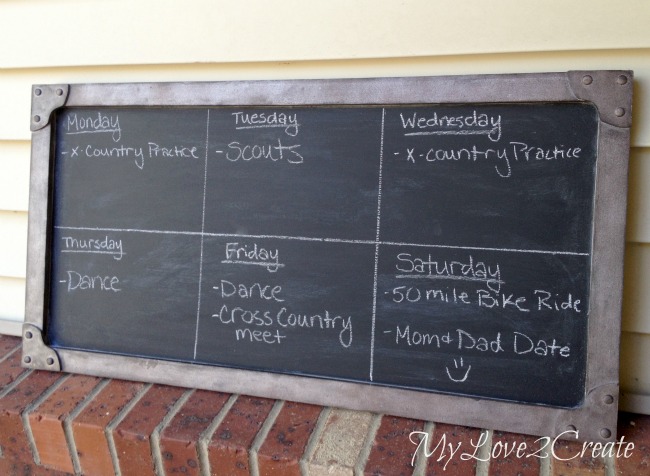 Monday
-X-Country Practice
Tuesday
-Scouts
Wednesday
-X-Country Practice
Thursday
-Dance
Friday
-Dance
-Cross Country
meet
Saturday
-50 mile Bike Ride
-Mom & Dad Date
MyLove2Create